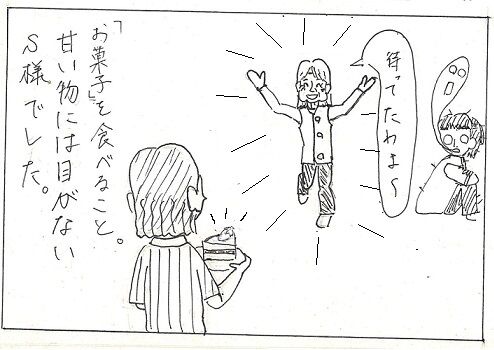 待ってたわよ〜
「お菓子」を食べること。
甘い物には目がない
S様でした。